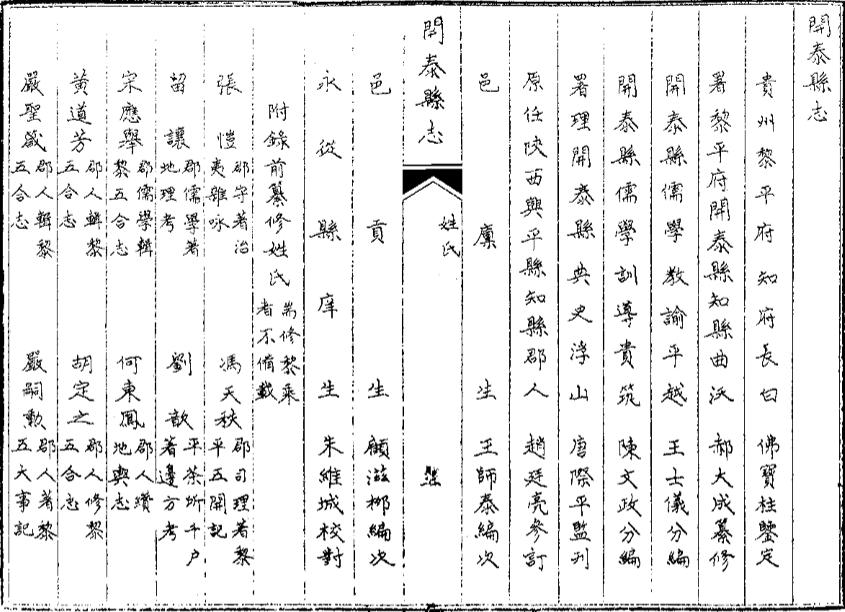 開泰縣志
貴州黎平府知府長白 佛寶柱鑒定
署黎平府開泰縣知縣曲沃 郝大成纂修
開泰縣儒學教諭平越 王士儀分編
開泰縣儒學訓導貴筑 陳文政分編
署理開泰縣典史浮山 唐際平監刊
原任陝西興平縣知縣郡人 趙廷亮參訂
邑廩生 王師泰編次
開泰縣志
姓氏
邑貢生 顧滋柳編次
永從縣庠生 朱維城校對
附錄前纂修姓氏 耑修黎乘者不備載
張愷 郡守著治夷雜咏 馮天秩 郡司理著黎平五開記
留讓 郡儒學著地理考 劉敔 平茶所千户著邊方考
宋應舉 郡儒學輯黎五合志 何東鳳 郡人纘地輿志
黃道芳 郡人輯黎五合志 胡定之 郡人修黎五合志
嚴聖箴 郡人輯黎五合志 嚴嗣勲 郡人著黎五大事記